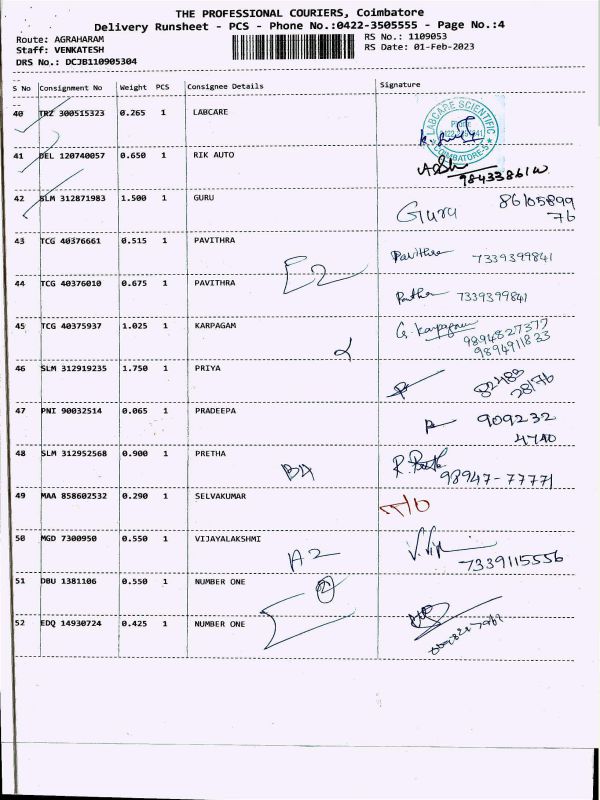 THE PROFESSIONAL COURIERS, Coimbatore
Delivery Runsheet - PCS - Phone No.:0422-3505555 - Page No.:4
Route: AGRAHARAM
RS No.: 1109053
Staff: VENKATESH
RS Date: 01-Feb-2023
DRS No.: DCJB110905304
S No Consignment No Weight PCS Consignee Details Signature
40 TRZ 300515323 0.265 1 LABCARE
LABCARE SCIENTIFIC
COIMBATORE-5
41 DEL 120740057 0.650 1 RIK AUTO
42 SLM 312871983 1.500 1 GURU Guru 86105899
76
43 TCG 40376661 0.515 1 PAVITHRA Pavithra 7339399841
E2
44 TCG 40376010 0.675 1 PAVITHRA 7339399841
45 TCG 40375937 1.025 1 KARPAGAM G. Karpagam
9894827377
9894911833
46 SLM 312919235 1.750 1 PRIYA 82488
28176
47 PNI 90032514 0.065 1 PRADEEPA 909232
4740
48 SLM 312952568 0.900 1 PRETHA
B4 98947-77771
49 MAA 858602532 0.290 1 SELVAKUMAR
50 MGD 7300950 0.550 1 VIJAYALAKSHMI
A2 7339115556
51 DBU 1381106 0.550 1 NUMBER ONE 2
52 EDQ 14930724 0.425 1 NUMBER ONE